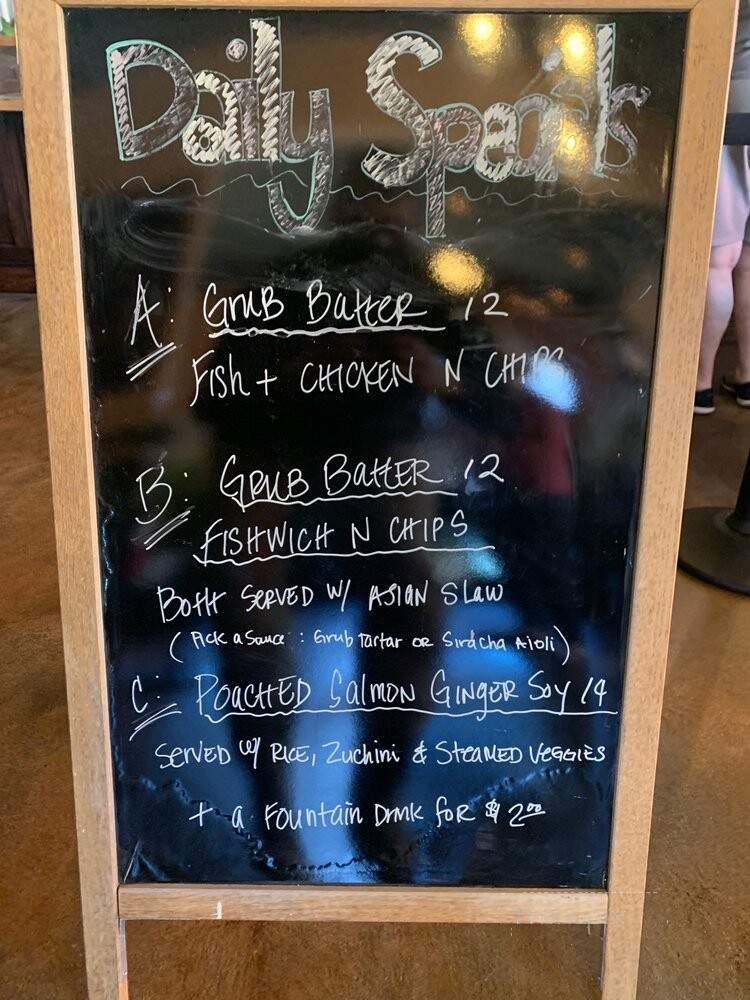 Daily Specials
A: GRUB BATTER 12
Fish + CHICKEN N CHIPS
B: GRUB BATTER 12
FISHWICH N CHIPS
BOTH SERVED W/ ASIAN SLAW
(Pick a Sauce : Grub Tartar or Siracha Aioli)
C: POACHED SALMON GINGER SOY 14
SERVED W/ RICE, Zuchini & STEAMED VEGGIES
+ a Fountain Drink for $2.00